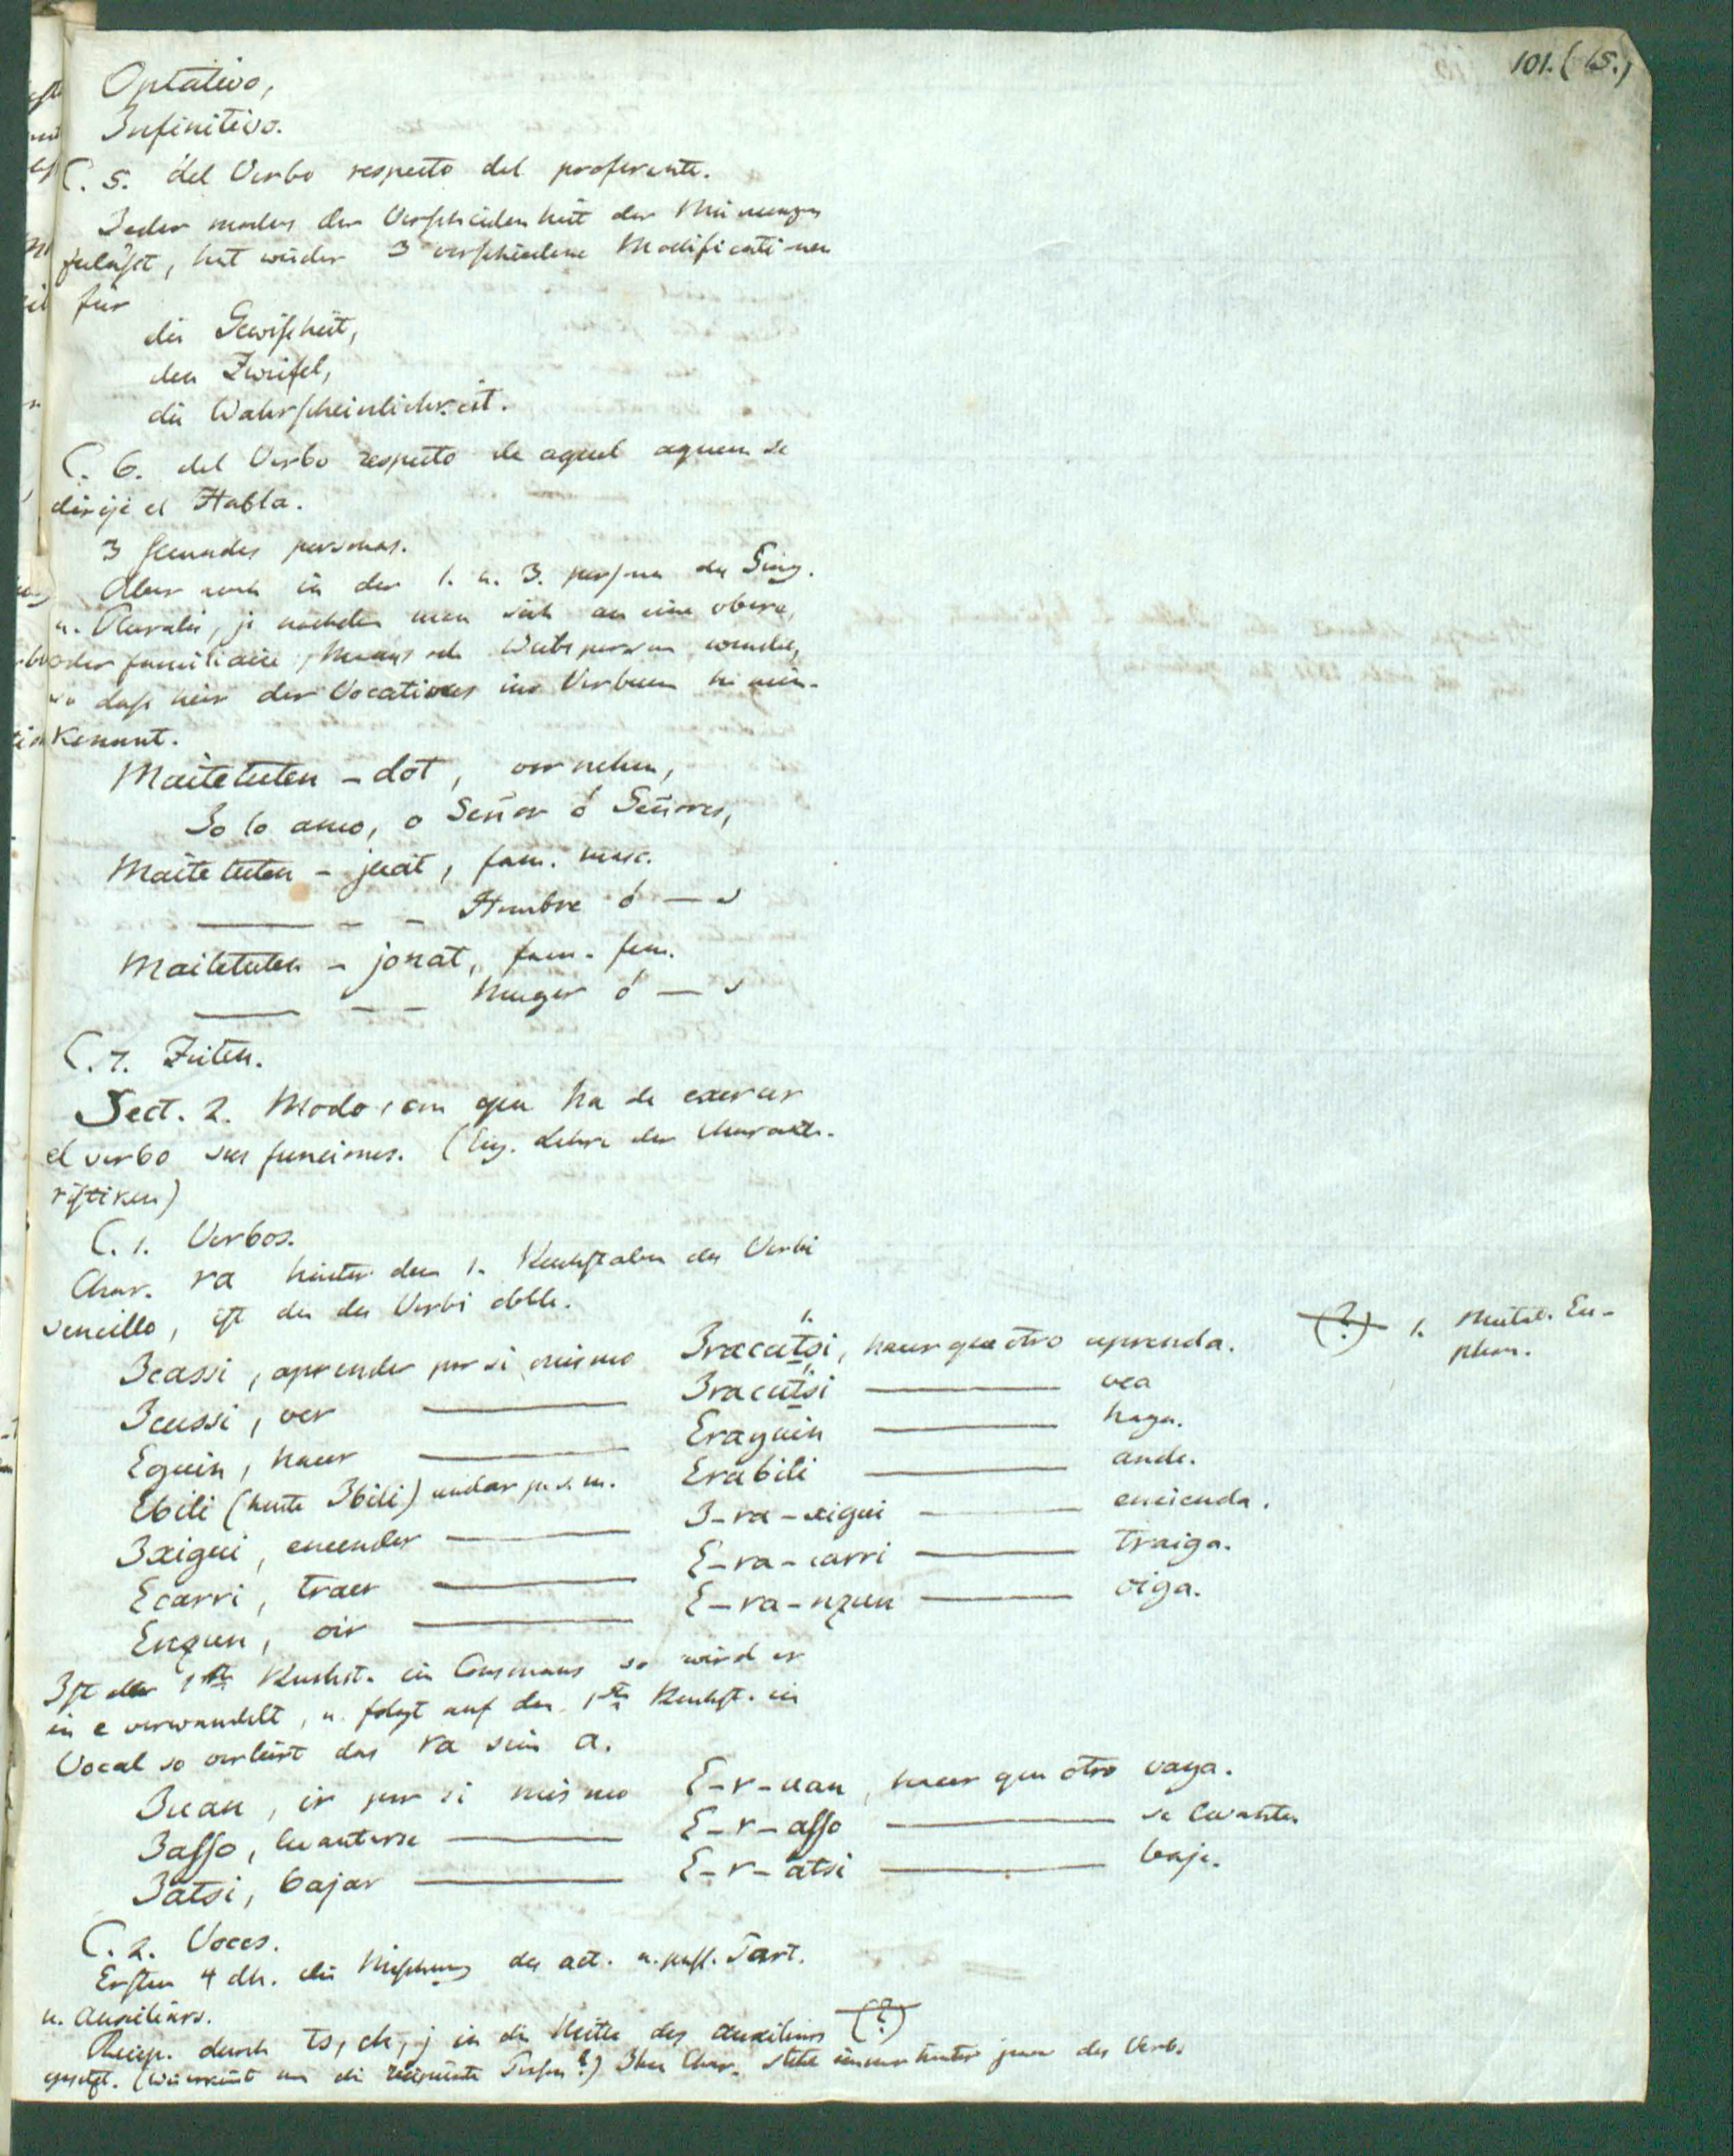 101. (15.)
Optativo,
Infinitivo.
C. 5. del Verbo respecto del proferente.
Jeder modus der Verschiedenheit der Meinungen
zuläßt, hat wieder 3 verschiedene Modificationen
für
die Gewißheit,
den Zweifel,
die Wahrscheinlichkeit.
C. 6. del Verbo respecto de aquel aquien se
dirije el Habla.
3 secundas personas.
Aber auch in der 1. u. 3. person des Sing.
u. Pluralis, je nachdem man sich an eine obere,
oder familiaire, Manns oder Weibsperson wendet,
so daß hier der Vocativus ins Verbum hinein-
kommt.
Maitetuten - dot, vornehm,
Jo lo amo, o Señor ó Señores,
Maitetuten - jeat, fam. masc.
Hombre ó — s
Maitetuten - jonat, fam. fem.
Muger ó — s
C. 7. Zeiten.
Sect. 2. Modo, con que ha de exercer
el verbo sus funciones. (Eig. Lehre der Characte-
ristiken)
C. 1. Verbos.
Char. ra hinter dem 1. Buchstaben des Verbi
sencillo, ist der des Verbi doble.
Icassi, aprender por si mismo Iracatsi, hacer que otro aprenda. (?) 1. Mutat. Eu-
phon.
Icussi, ver — Iracutsi — vea
Eguin, hacer — Eraguin — haga.
Ebili (heute Ibili) andar p. s. m. Erabili — ande.
Ixigui, encender — I-ra-xigui — encienda.
Ecarri, traer — E-ra-carri — traiga.
Enzun, oir — E-ra-nzun — oiga.
Ist der 1ste Buchst. ein Consonans so wird er
in e verwandelt, u. folgt auf den 1sten Buchst. ein
Vocal so verliert das ra sein a.
Juan, ir por si mismo E-r-uan, hacer que otro vaya.
Jasso, levantarse — E-r-asso — se levante.
Jatsi, bajar — E-r-atsi — baje.
C. 2. Voces.
Ersten 4 dh. die Mischung des act. u. pass. Part.
u. Auxiliars.
Recip. durch ts, ch, j in die Mitte des auxiliars (?)
gesetzt. (Wie erkennt man die recipiente Person?) Ihr Char. steht immer hinter jenem des Verb.